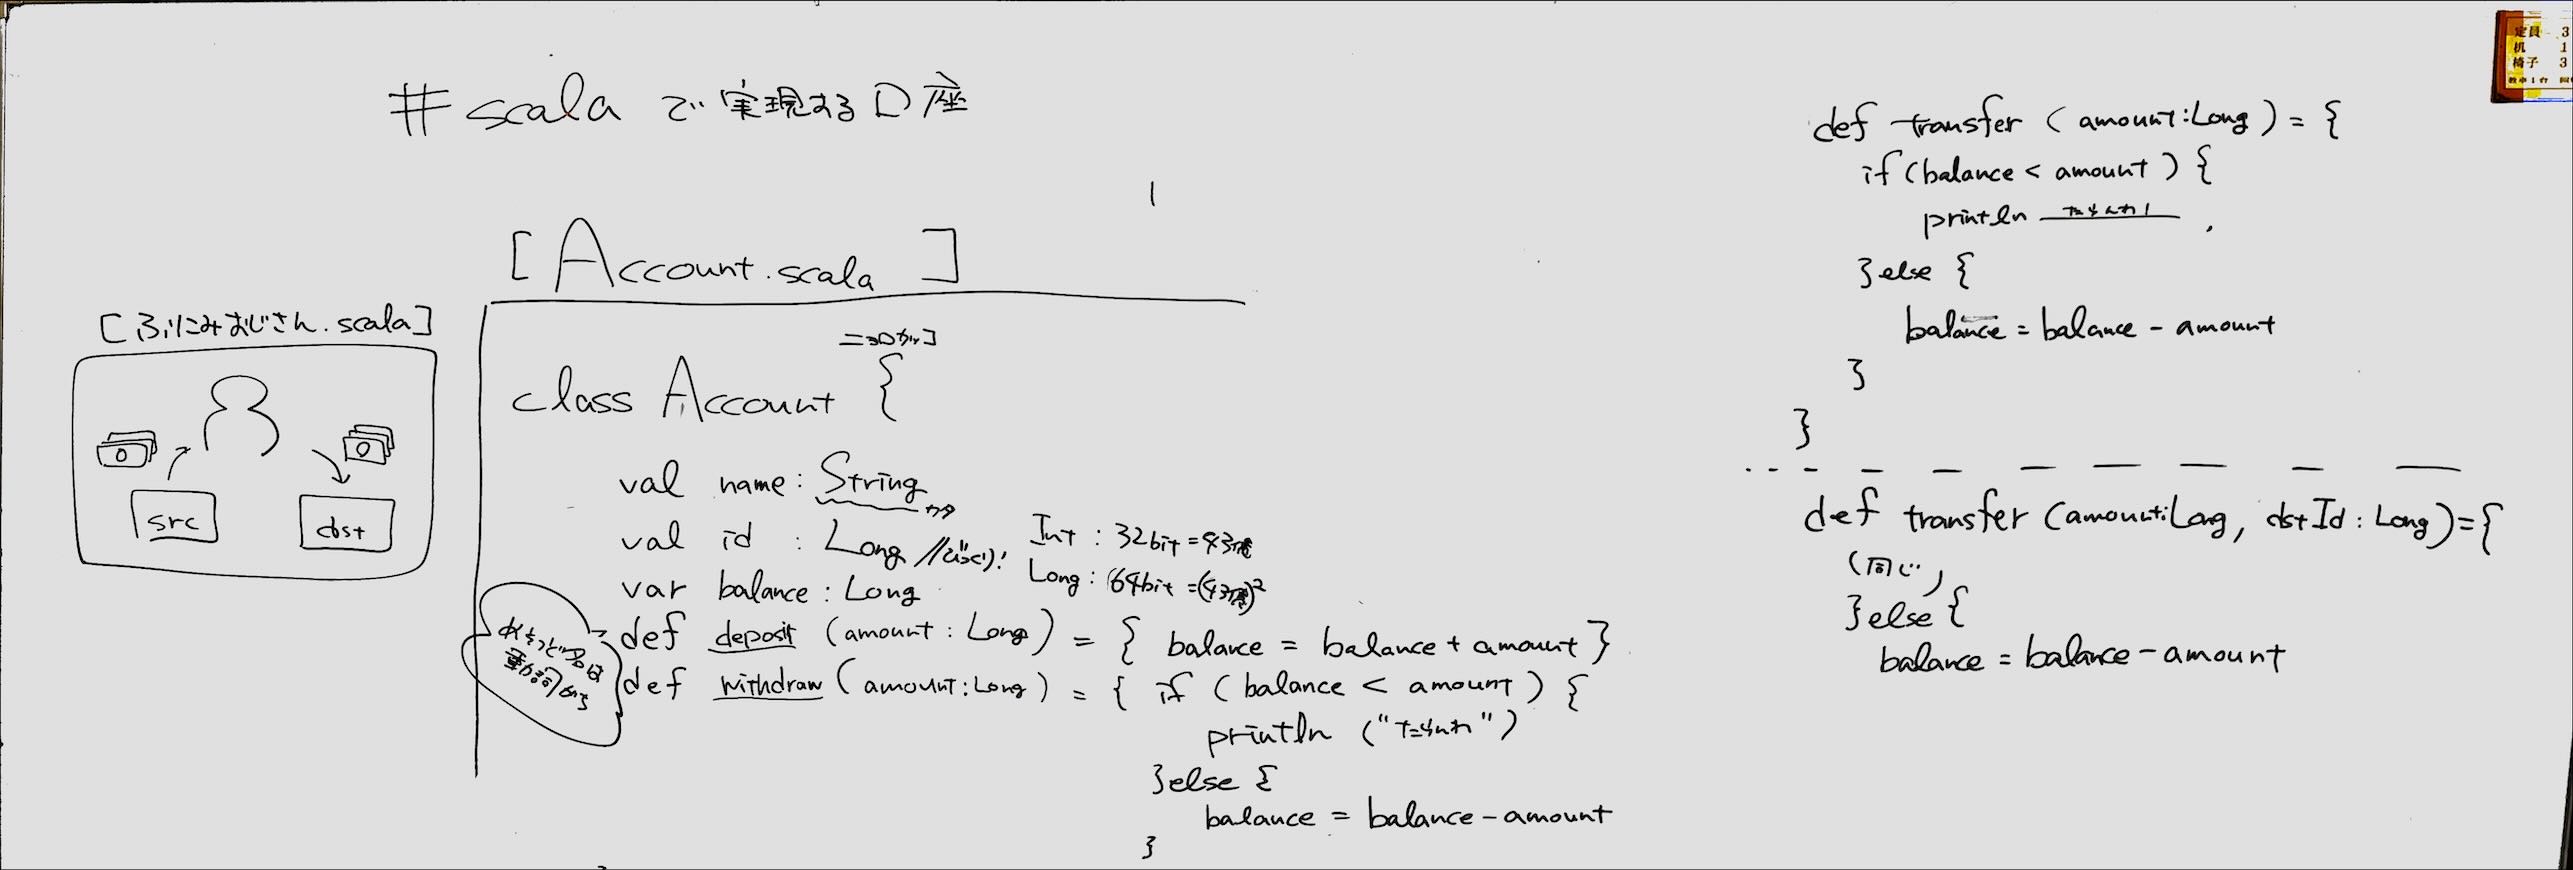 # scala で実現する口座
[Account.scala]
[ふりこみおじさん.scala]
src
dst
ニョロカッコ
class Account {
val name: String
カタ
val id : Long //とびっくり!
var balance: Long
Int : 32bit = 43億
Long : 64bit = (43億)²
メソッド名は
動詞から
def deposit (amount : Long) = { balance = balance + amount }
def withdraw (amount:Long) = { if (balance < amount) {
println ("たらんわ")
}else {
balance = balance - amount
}
def transfer (amount:Long) = {
if (balance < amount) {
println たらんわ!
}else {
balance = balance - amount
}
}
def transfer (amount:Long, dstId : Long) = {
(同じ)
}else {
balance = balance - amount
定員 3
机 1
椅子 3